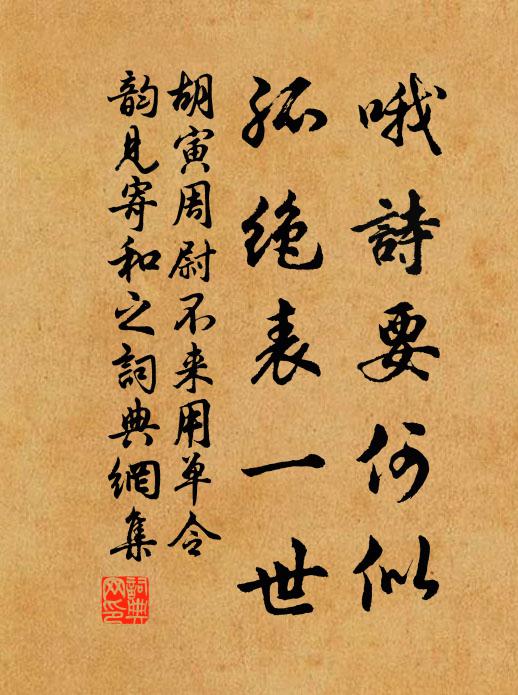 哦詩要何似
孤絶表一世
胡寅周尉不来用单令
韵見寄和之詞典網集
詞典网印